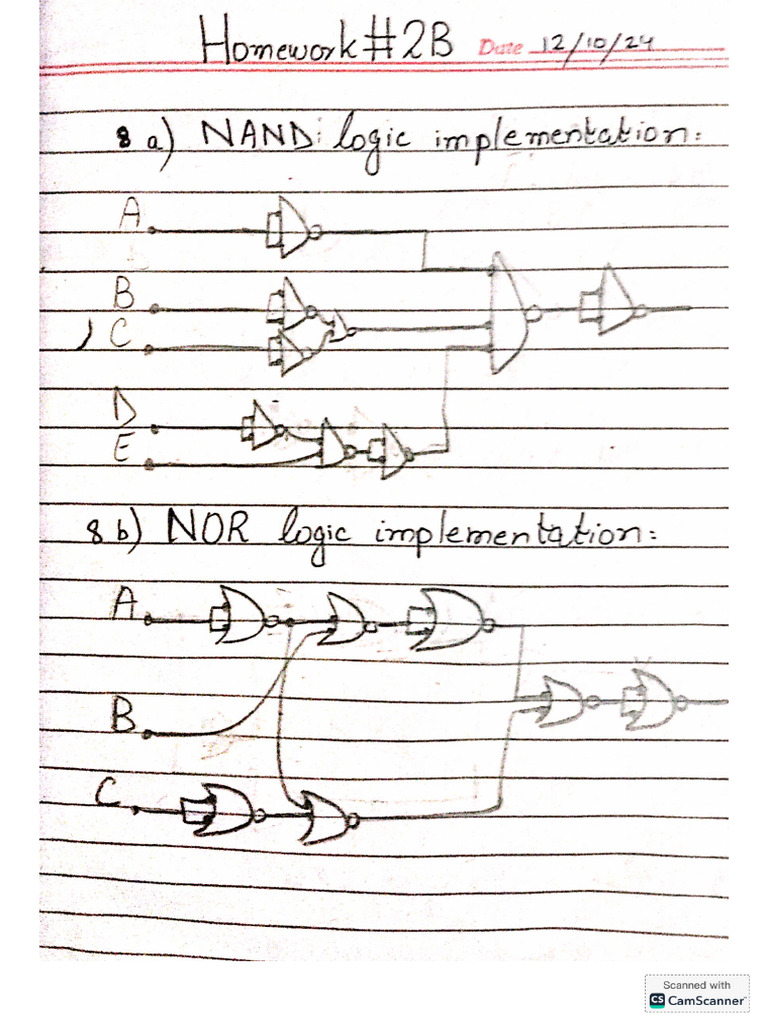 Homework#2B Date 12/10/24
8 a) NAND: logic implementation:
A
B
C
D
E
8 b) NOR logic implementation:
A
B
C
Scanned with
CS CamScanner